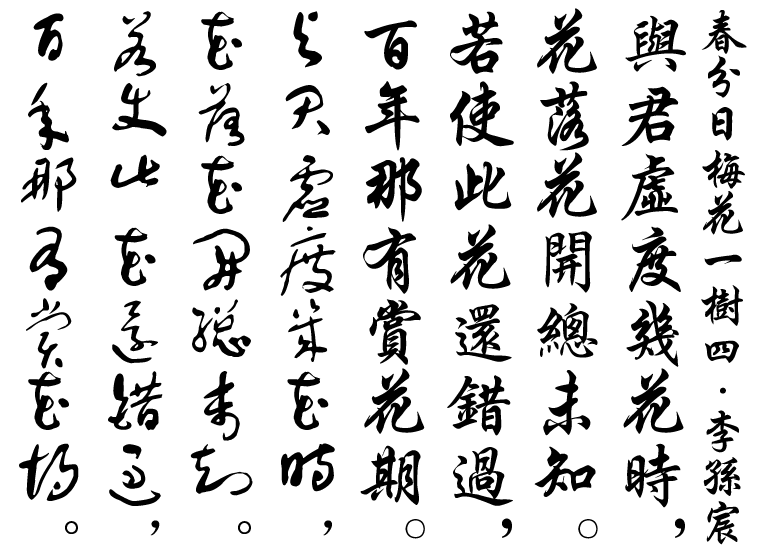 春分日梅花一樹四·李孫宸
與君虛度幾花時，
花落花開總未知。
若使此花還錯過，
百年那有賞花期。
与君虚度几花時，
花落花開總未知。
若使此花還錯過，
百年那有賞花場。